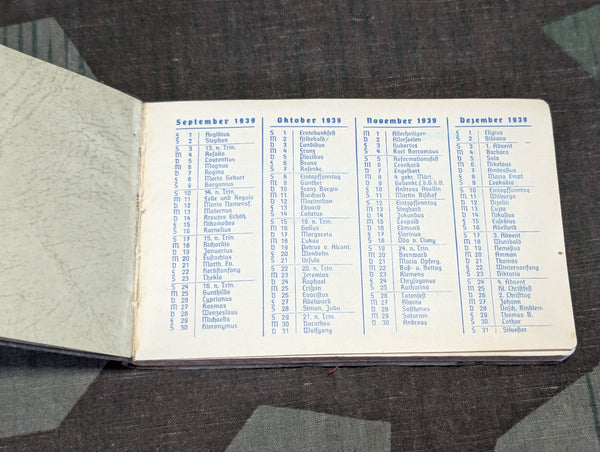 September 1939
F 1 Aegidius
S 2 Stephan
S 3 13. n. Trin.
M 4 Rosalia
D 5 Laurentius
M 6 Magnus
D 7 Regina
F 8 Maria Geburt
S 9 Gorgonius
S 10 14. n. Trin.
M 11 Felix und Regula
D 12 Maria Namensf.
M 13 Maternus
D 14 Kreuzes Erhöh.
F 15 Nikomedes
S 16 Kornelius
S 17 15. n. Trin.
M 18 Richardis
D 19 Januarius
M 20 Eustachius
D 21 Matth. Ev.
F 22 Herbstanfang
S 23 Thekla
S 24 16. n. Trin.
M 25 Gunthilde
D 26 Cyprianus
M 27 Kosmas
D 28 Wenzeslaus
F 29 Michaelis
S 30 Hieronymus
Oktober 1939
S 1 Erntedankfest
M 2
D 3 Candidus
M 4 Franz
D 5 Placidus
F 6 Bruno
S 7 Rosenkr.
S 8 Eintopfsonntag
M 9 Günther
D 10 Franz Borgia
M 11 Burchard
D 12 Maximilian
F 13 Eduard
S 14 Calixtus
S 15 19. n. Trin.
M 16 Gallus
D 17
M 18 Lukas
D 19 Petrus v. Alcant.
F 20 Wendelin
S 21 Ursula
S 22 20. n. Trin.
M 23
D 24 Raphael
M 25 Crispin
D 26 Evaristus
F 27 Adelward
S 28 Simon, Judä
S 29 21. n. Trin.
M 30 Dorothea
D 31 Wolfgang
November 1939
M 1 Allerheiligen
D 2 Allerseelen
F 3 Hubertus
S 4 Karl Borromäus
S 5 Reformationsfest
M 6 Leonhard
D 7 Engelbert
M 8 4 gekr. Märt.
D 9
F 10 Andreas Avellin
S 11 Martin Bischof
S 12 Eintopfsonntag
M 13
D 14 Jukundus
M 15 Leopold
D 16 Edmund
F 17 Florinus
S 18 Odo v. Cluny
S 19 24. n. Trin.
M 20
D 21 Maria Opferg.
M 22 Buß- u. Bettag
D 23 Klemens
F 24 Chrysogonus
S 25 Katharina
S 26 Totenfest
M 27
D 28 Sosthenes
M 29 Saturnin
D 30 Andreas
Dezember 1939
F 1 Eligius
S 2 Bibiana
S 3 1. Advent
M 4 Barbara
D 5 Sola
M 6 Nikolaus
D 7 Ambrosius
F 8 Maria Empf.
S 9 Leokadia
S 10 Eintopfsonntag
M 11
D 12
M 13 Luzia
D 14 Nikasius
F 15 Eusebius
S 16 Adelheid
S 17 3. Advent
M 18 Wunibald
D 19 Nemesius
M 20 Ammon
D 21 Thomas
F 22 Wintersanfang
S 23 Viktoria
S 24 4. Advent
M 25 Hl. Christfest
D 26 2. Christtag
M 27 Johann
D 28 Unsch. Kindlein
F 29 Thomas B.
S 30 Lothar
S 31 Silvester